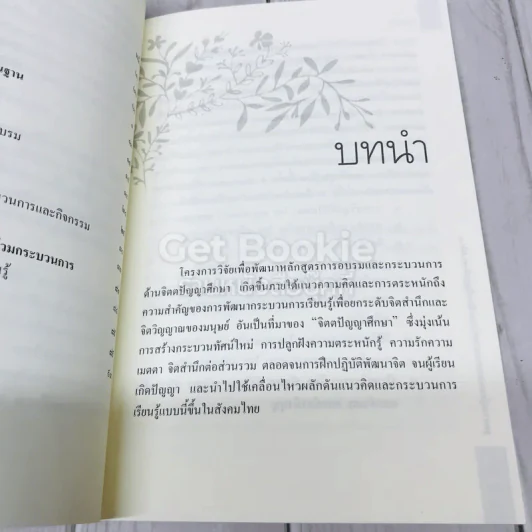 นฐาน
บรม
บวนการและกิจกรรม
ร่วมกระบวนการ
รู้
บทนำ
Get Bookie
โครงการวิจัยเพื่อพัฒนาหลักสูตรการอบรมและกระบวนการ
ด้านจิตตปัญญาศึกษา เกิดขึ้นภายใต้แนวความคิดและการตระหนักถึง
ความสำคัญของการพัฒนากระบวนการเรียนรู้เพื่อยกระดับจิตสำนึกและ
จิตวิญญาณของมนุษย์ อันเป็นที่มาของ “จิตตปัญญาศึกษา” ซึ่งมุ่งเน้น
การสร้างกระบวนทัศน์ใหม่ การปลูกฝังความตระหนักรู้ ความรักความ
เมตตา จิตสำนึกต่อส่วนรวม ตลอดจนการฝึกปฏิบัติพัฒนาจิต จนผู้เรียน
เกิดปัญญา และนำไปใช้เคลื่อนไหวผลักดันแนวคิดและกระบวนการ
เรียนรู้แบบนี้ขึ้นในสังคมไทย